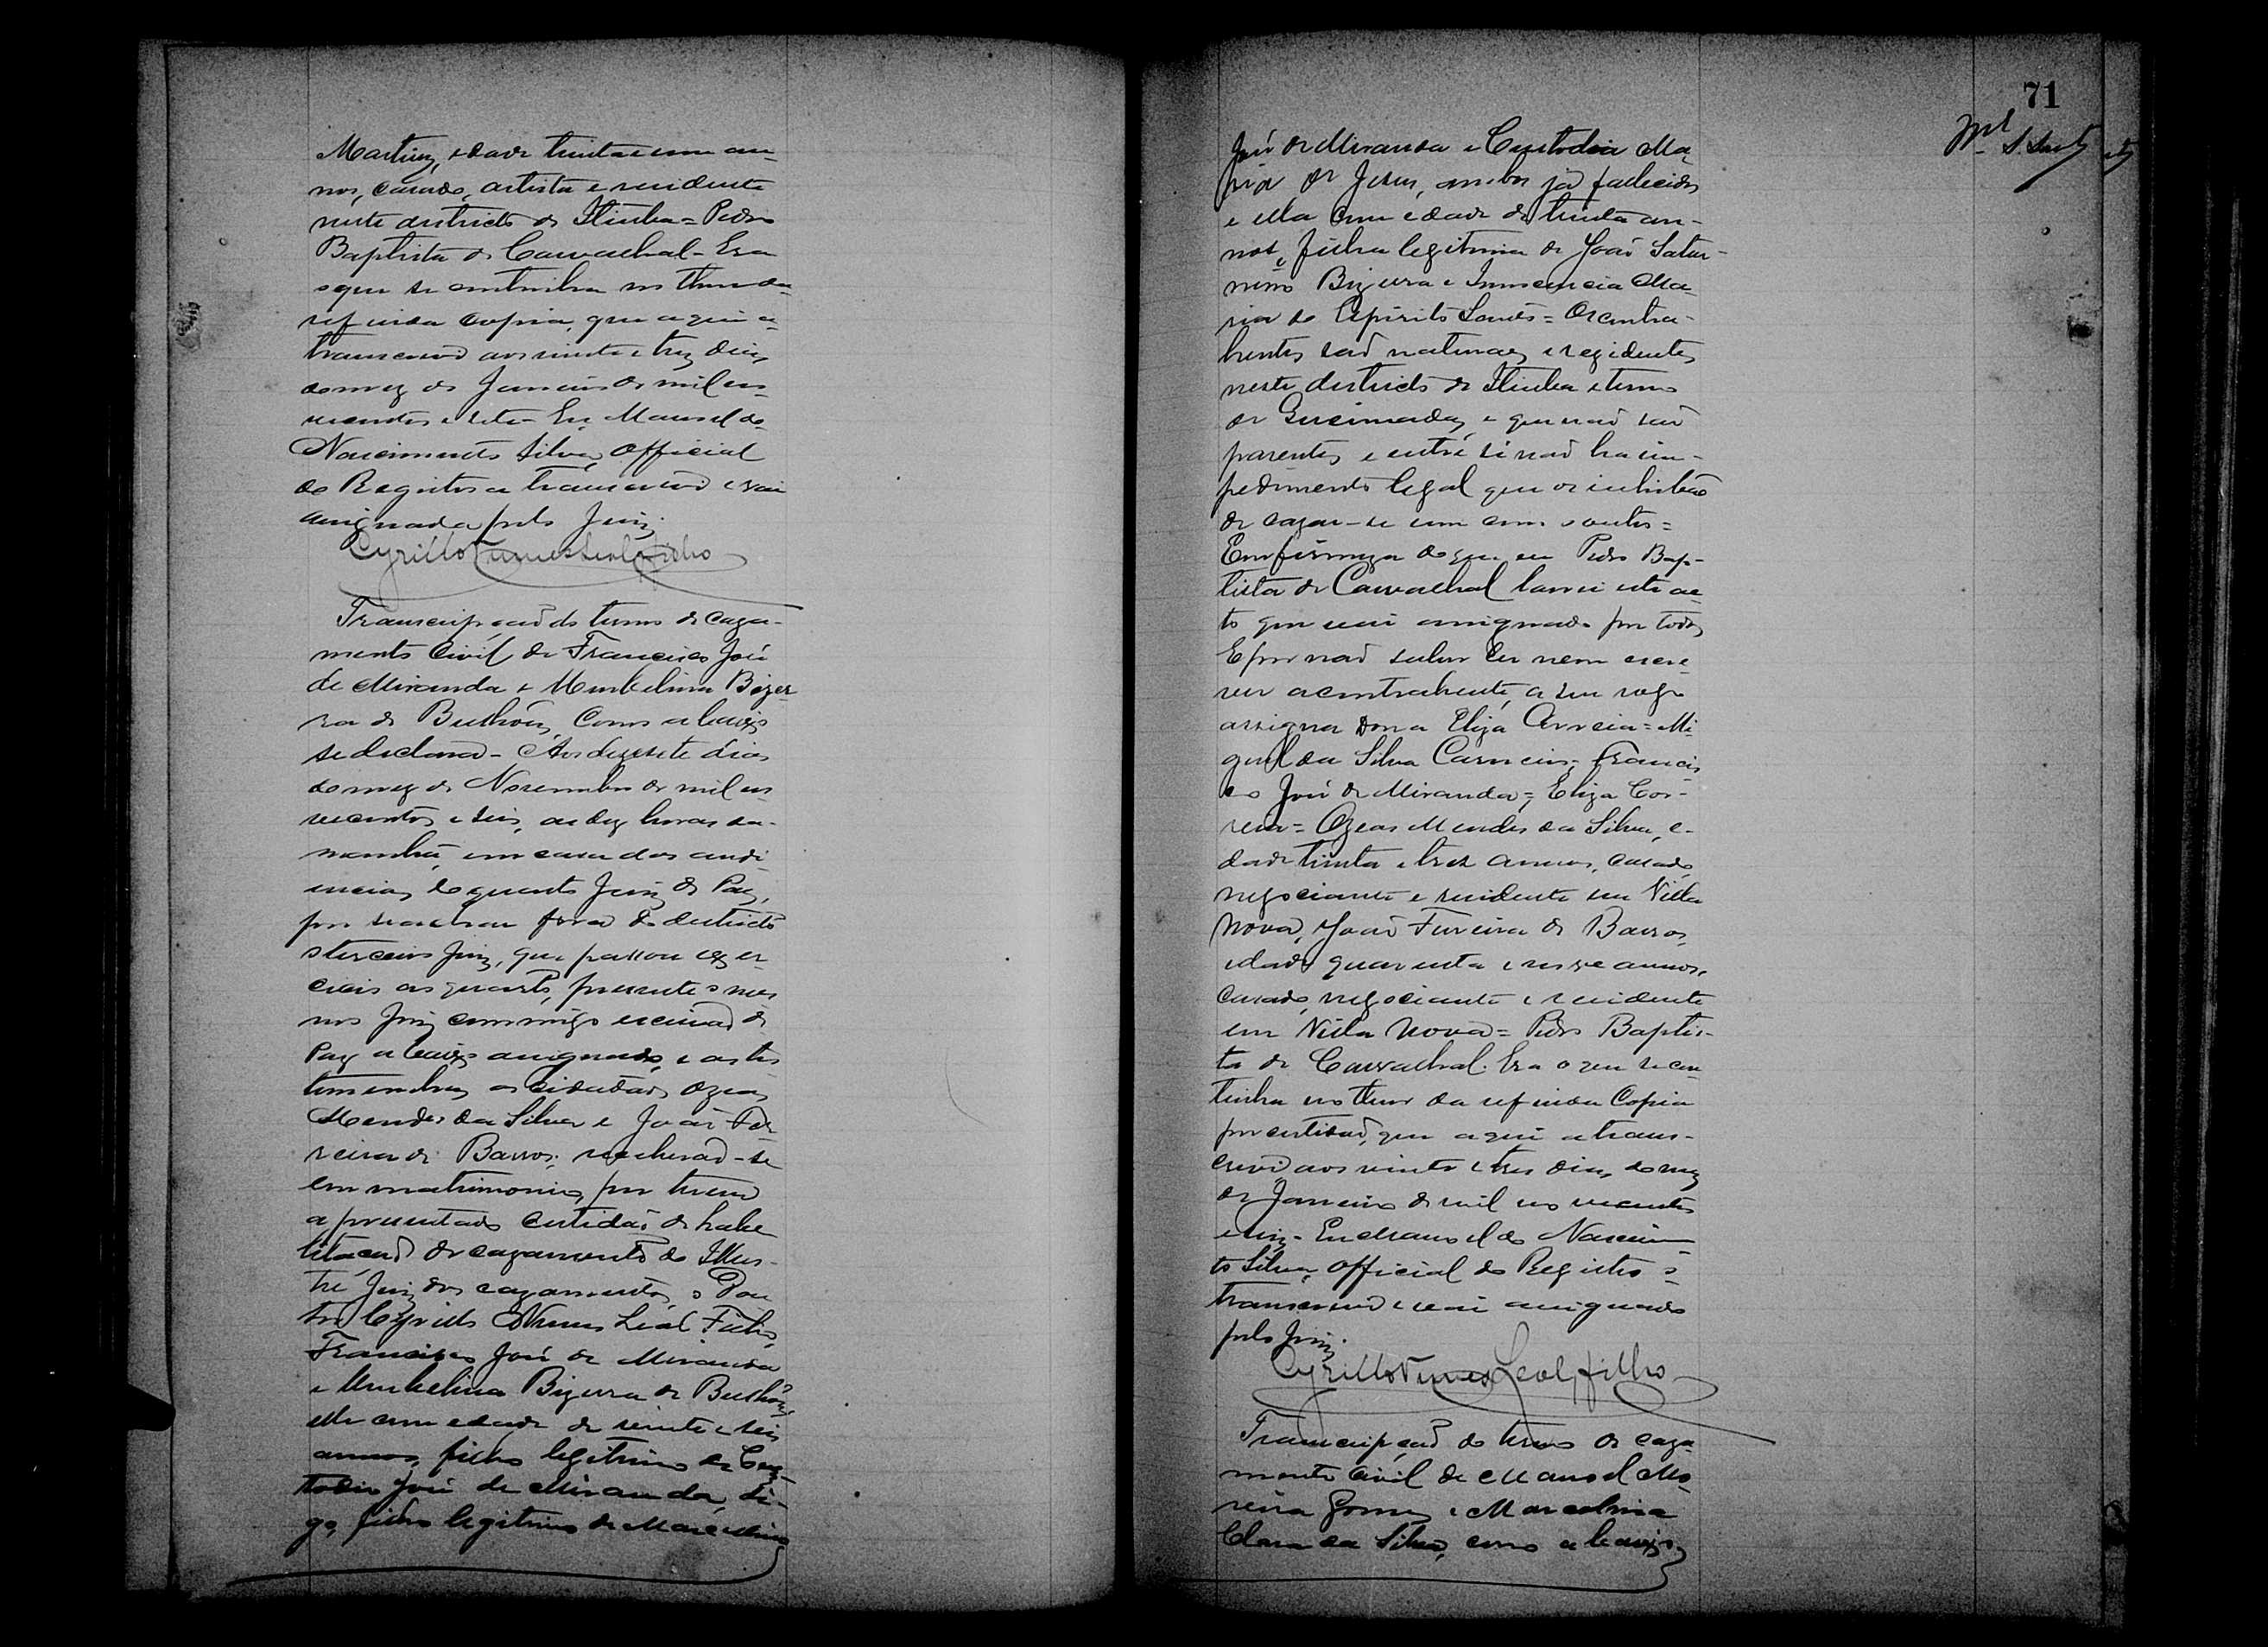 Martins, edade trinta e um an-
nos, casado, artista e residente
neste districto de Itiuba = Pedro
Baptista de Carvalhal - Era
o que se continha no theor da
referida copia, que aqui a
transcrevo aos vinte e trez dias
do mez de Janeiro de mil no-
vecentos e sete - Eu Manoel do
Nascimento Silva, Official
do Registro a transcrevo e vai
assignada pelo Juiz.
Cyrillo Nunes Leal Filho
Transcripção do termo de caza-
mento Civil de Francisco José
de Miranda e Umbelina Bezer
ra de Bulhões, como abaixo
se declara - Aos dezesete dias
do mez de Novembro de mil no-
vecentos e seis, as dez horas da
manhã, em casa das audi
encias do quarto Juiz de Paz,
por se achar fora do districto
o terceiro Juiz, que passou exer-
cicio ao quarto, presente o mes
mo Juiz commigo escrivão de
Paz abaixo assignado, e as tes
temunhas os cidadãos Ozeas
Mendes da Silva e João Fer
reira de Barros; receberão-se
em matrimonio, por terem
apresentado certidão de habe
litação de cazamento do Illus-
tre Juiz dos cazamentos, o Dou
tor Cyrillo Nunes Leal Filho,
Francisco José de Miranda
e Umbelina Bizerra de Bulhões,
elle com edade de vinte e seis
annos, filho legitimo de Cus-
todio José de Miranda, di-
go, filho legitimo de Marcellino
71
José de Miranda e Custodia Ma
ria de Jesus, ambos já fallecidos
e ella com edade de trinta an-
nos, filha legitima de João Satur-
nino Bizerra e Innocencia Ma-
ria do Espirito Santo = Os contra-
hentes são naturaes e rezidentes
neste districto de Itiuba e termo
de Queimadas, e que não são
parentes e entre si não ha im-
pedimento legal que os inhibão
de cazar-se um com o outro =
Em firmeza do que eu Pedro Bap-
tista de Carvalhal lavrei este ac
to que vai assignado por todos
E por não saber ler nem escre
ver a contrahente, a seu rogo
assigna Dona Eliza Correia = Mi
guel da Silva Carneiro, Francis
co José de Miranda = Eliza Cor-
reia = Ozeas Mendes da Silva, e-
dade trinta e trez annos, casado,
negociante e residente em Villa
Nova, João Ferreira de Barros,
edade quarenta e nove annos,
casado, negociante e residente
em Villa Nova = Pedro Baptis-
ta de Carvalhal. Era o que se con
tinha no theor da referida Copia
por certidão, que aqui a trans-
crevo aos vinte e trez dias do mez
de Janeiro de mil novecentos
e sete - Eu Manoel do Nascimen
to Silva, Official do Registro o
transcrevo e vai assignado
pelo Juiz.
Cyrillo Nunes Leal Filho
Transcripção do termo de caza
mento Civil de Manoel Mo
reira Gomes e Marcolina
Clara da Silva, como abaixo